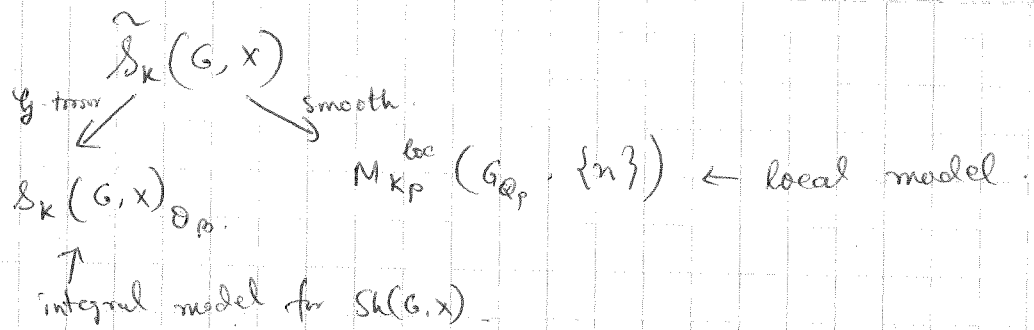 S̃_K (G, X)
G-torsor smooth
S_K (G, X)_{O_p}. M^{loc}_{K_p} (G_{Q_p}, {μ}) ← local model.
↑
integral model for Sh(G, X)